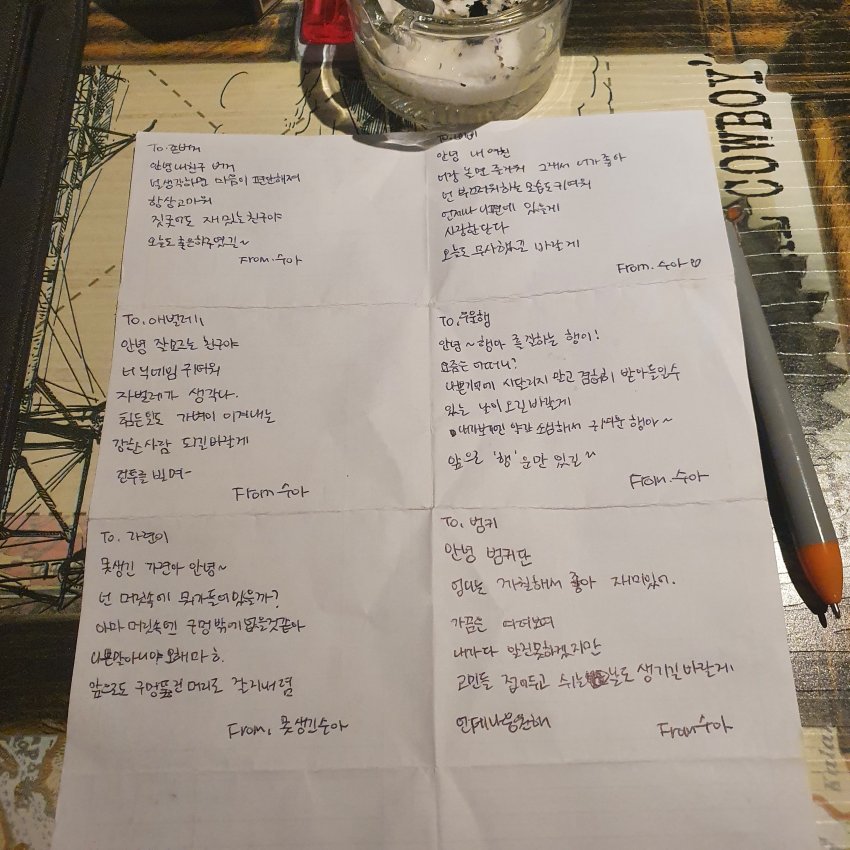 To. 쫀버거
안녕 내친구 버거
널 생각하면 마음이 편안해져
항상고마워
짓궂어도 재밌는친구야
오늘도 좋은하루였길~
From. 수아
To.
안녕 내 여친
너랑 놀면 즐거워 그래서 너가좋아
넌 부끄러워하는 모습도 귀여워
언제나 니편에 있을게
사랑한단다
오늘도 무사했길 바랄게
From. 수아♡
To. 애벌레
안녕 잘모르는 친구야
너 닉네임 귀여워
자벌레가 생각나.
힘든일도 가변이 이겨내는
강한사람 되길바랄게
건투를 빌며-
From 수아
To. 우울행
안녕~ 행아 롤 잘하는 행이!
요즘은 어떠니?
나쁜기억에 시달리지 말고 겸허히 받아들일수
있는 날이오길바랄게
내가보기엔 약간 소심해서 귀여운 행아~
앞으로 '행'운만 있길~
From. 수아
To. 가련이
못생긴 가련아 안녕~
넌 머릿속에 뭐가들어있을까?
아마 머릿속엔 구멍밖에없을것같아
나쁜말아니야 오해마ㅎ.
앞으로도 구멍뚫린 머리로 잘지내렴
From. 못생긴수아
To. 범귀
안녕 범귀단
엄마는 까칠해서 좋아 재미있어.
가끔은 여려보여
내가다 알진못하겠지만
고민들 접어두고 쉬는 날도 생기길바랄게.
언제나응원해
From 수아
COWBOY'